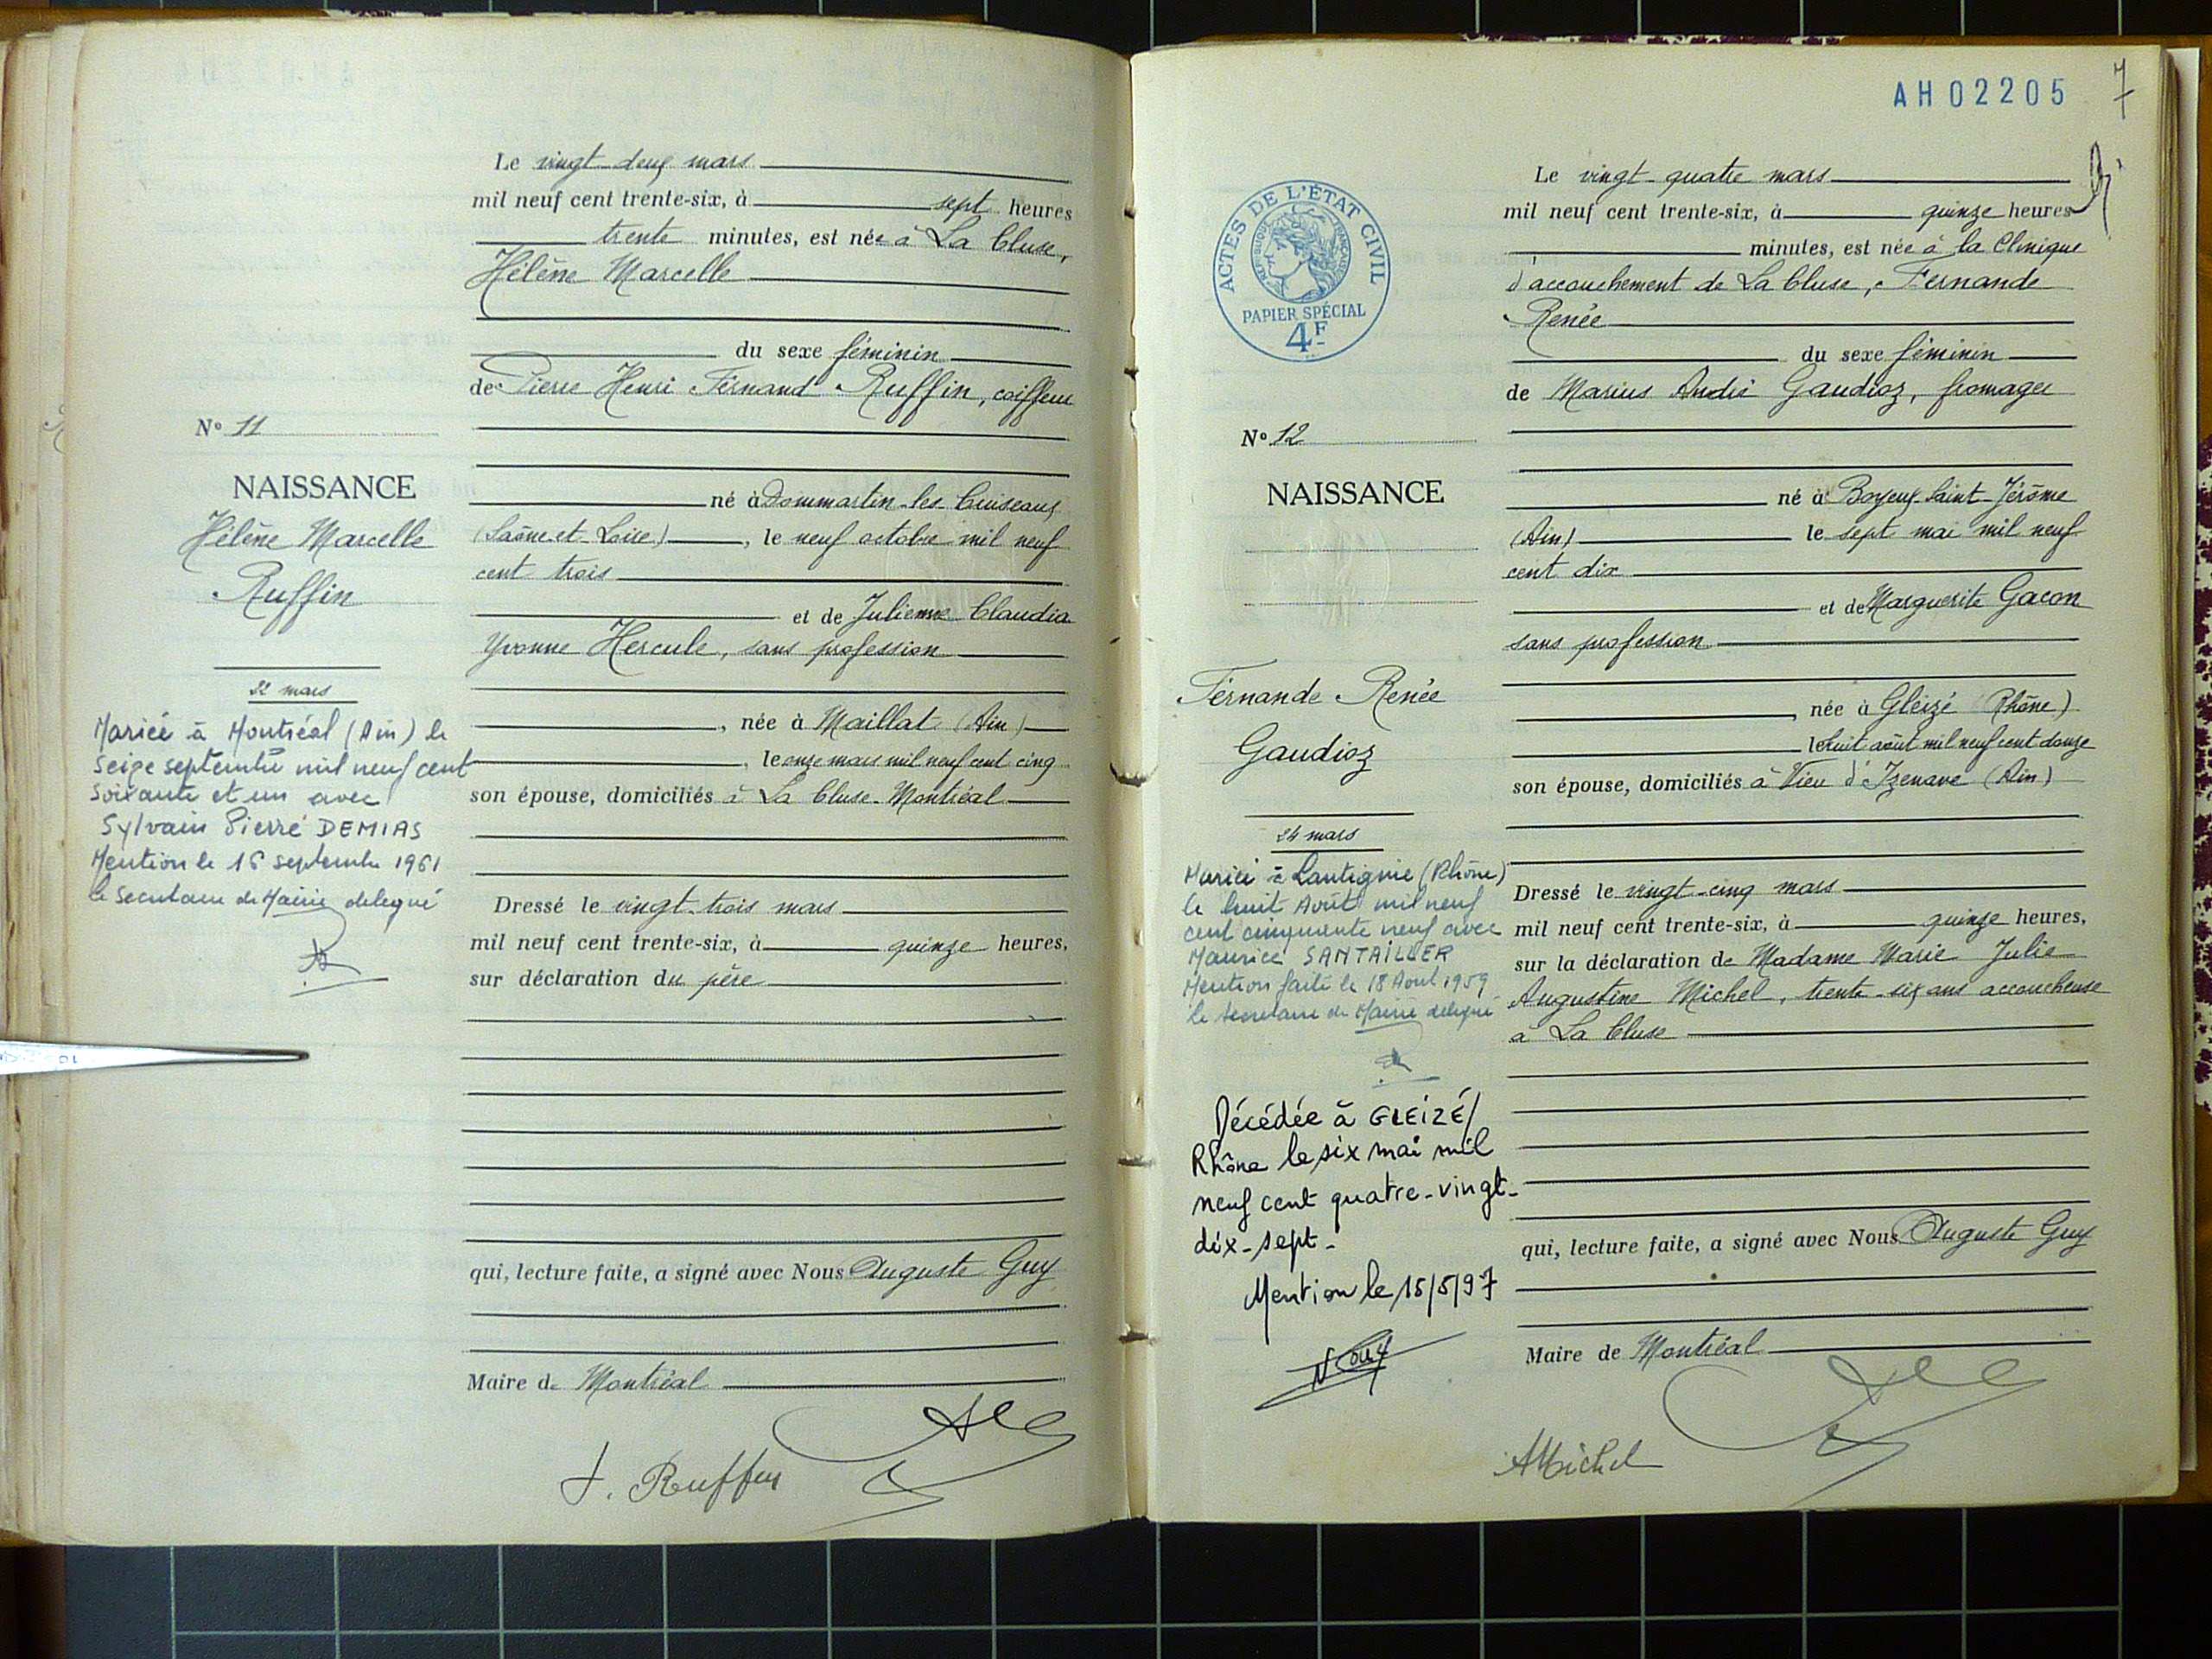 Le vingt-deux mars
mil neuf cent trente-six, à sept heures
trente minutes, est née à La Cluse,
Hélène Marcelle
du sexe féminin
de Pierre Henri Fernand Ruffin, coiffeur
né à Dommartin-les-Cuiseaux
(Saône-et-Loire), le neuf octobre mil neuf
cent trois
et de Julienne Claudia
Yvonne Hercule, sans profession
, née à Maillat (Ain)
, le onze mars mil neuf cent cinq
son épouse, domiciliés à La Cluse-Montréal
Dressé le vingt-trois mars
mil neuf cent trente-six, à quinze heures,
sur déclaration du père
qui, lecture faite, a signé avec Nous Auguste Guy
Maire de Montréal
F. Ruffin
No 11
NAISSANCE
Hélène Marcelle
Ruffin
22 mars
Mariée à Montréal (Ain) le
seize septembre mil neuf cent
soixante et un avec
Sylvain Pierre DEMIAS
Mention le 16 septembre 1961
le Secrétaire de Mairie délégué
AH02205
7
Le vingt-quatre mars
mil neuf cent trente-six, à quinze heures
minutes, est née à la Clinique
d'accouchement de La Cluse, Fernande
Renée
du sexe féminin
de Marius André Gaudioz, fromager
né à Boyeux-Saint-Jérôme
(Ain) le sept mai mil neuf
cent dix
et de Marguerite Gacon
sans profession
, née à Gleizé (Rhône)
le huit août mil neuf cent douze
son épouse, domiciliés à Vieu d'Izenave (Ain)
Dressé le vingt-cinq mars
mil neuf cent trente-six, à quinze heures,
sur la déclaration de Madame Marie Julie
Augustine Michel, trente-six ans accoucheuse
à La Cluse
qui, lecture faite, a signé avec Nous Auguste Guy
Maire de Montréal
AMichel
ACTES DE L'ÉTAT CIVIL
RÉPUBLIQUE FRANÇAISE
PAPIER SPÉCIAL
4F
No 12
NAISSANCE
Fernande Renée
Gaudioz
24 mars
Mariée à Lantignié (Rhône)
le huit Août mil neuf
cent cinquante neuf avec
Maurice SANTAILLER
Mention faite le 18 Août 1959
le secrétaire de Mairie délégué
Décédée à GLEIZÉ/
Rhône le six mai mil
neuf cent quatre-vingt-
dix-sept-
Mention le 15/5/97